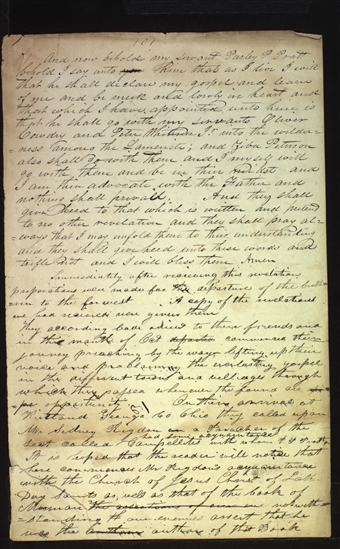 And now behold my servant Parley P. Pratt
behold I say unto him that as I live I will
that he shall declare my gospel and learn
of me and be meek and lowly in heart and
that which I have appointed unto him is
that he shall go with my servants Oliver
Cowdry and Peter Whitmer Jr. into the wilder-
-ness among the Lamanites; and Ziba Peterson
also shall go with them and I myself will
go with them and be in their midst and
I am their advocate with the Father and
nothing shall prevail. And they shall
give heed to that which is written and pretend
to no other revelation and they shall pray al-
ways that I may unfold them to their understanding
and they shall give heed unto these words and
trifle not and I will bless them Amen
Immediately after receiving this revelation
preparations were made for the departure of the breth-
ren to the far west. A copy of the revelations
was given them
They according bade adieu to their friends and
in the month of Oct commenced their
journey preaching by the way lifting up their
voice and proclaiming the everlasting gospel
in the different towns and villages through
which they passed whenever they found
opportunity On their arrival at
Ohio they called upon
Mr. Sidney Rigdon a Preacher of the
sect called Campbellites
had some acquaintance with
It is that the reader will notice that
here commences Mr Rigdon's acquaintance
with the Church of Jesus Christ of Latt
Day Saints as well as that of the book of
Mormon notwith-
-standing our enemies assert that he
was the author of the Book